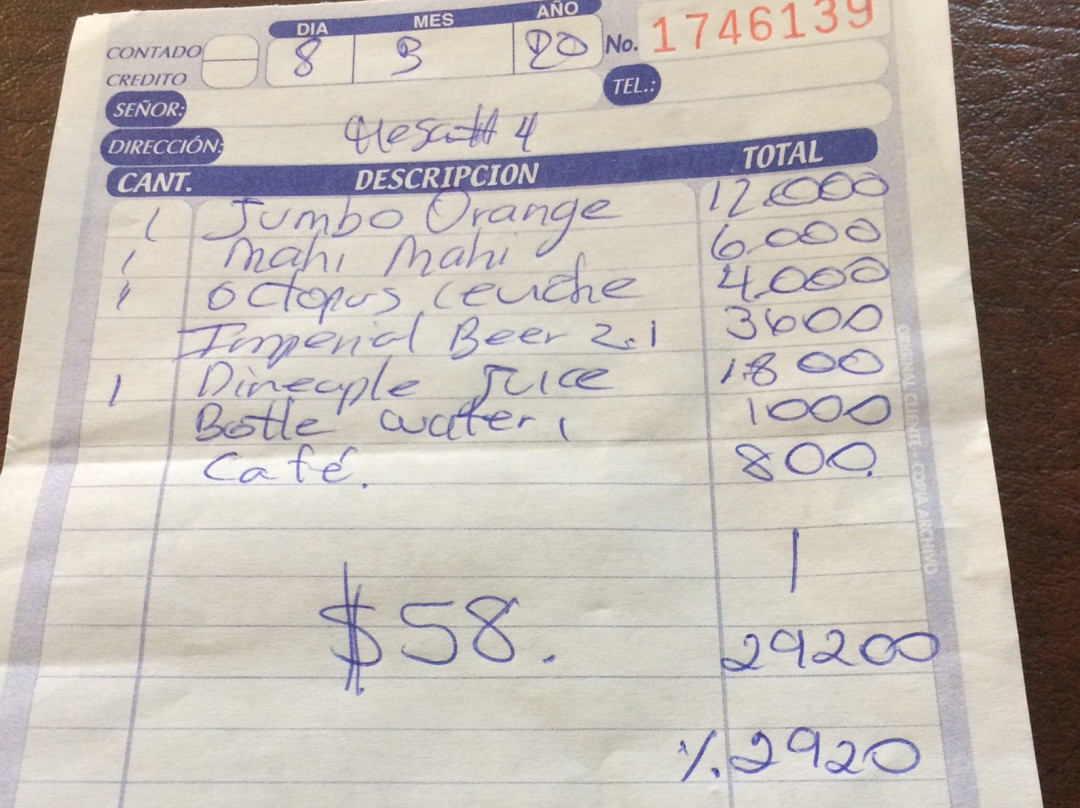 DIA MES AÑO
CONTADO 8 3 20 No. 1746139
CREDITO
SEÑOR: TEL.:
DIRECCIÓN: Mesa # 4
CANT. DESCRIPCION TOTAL
1 Jumbo Orange 12.000
1 Mahi Mahi 6.000
1 Octopus Ceuiche 4.000
Imperial Beer 2.1 3600
1 Pineaple Juice 1800
Bottle water 1 1000
Café. 800.
$58.
29200
%. 2920
ORIGINAL CLIENTE - COPIA ARCHIVO